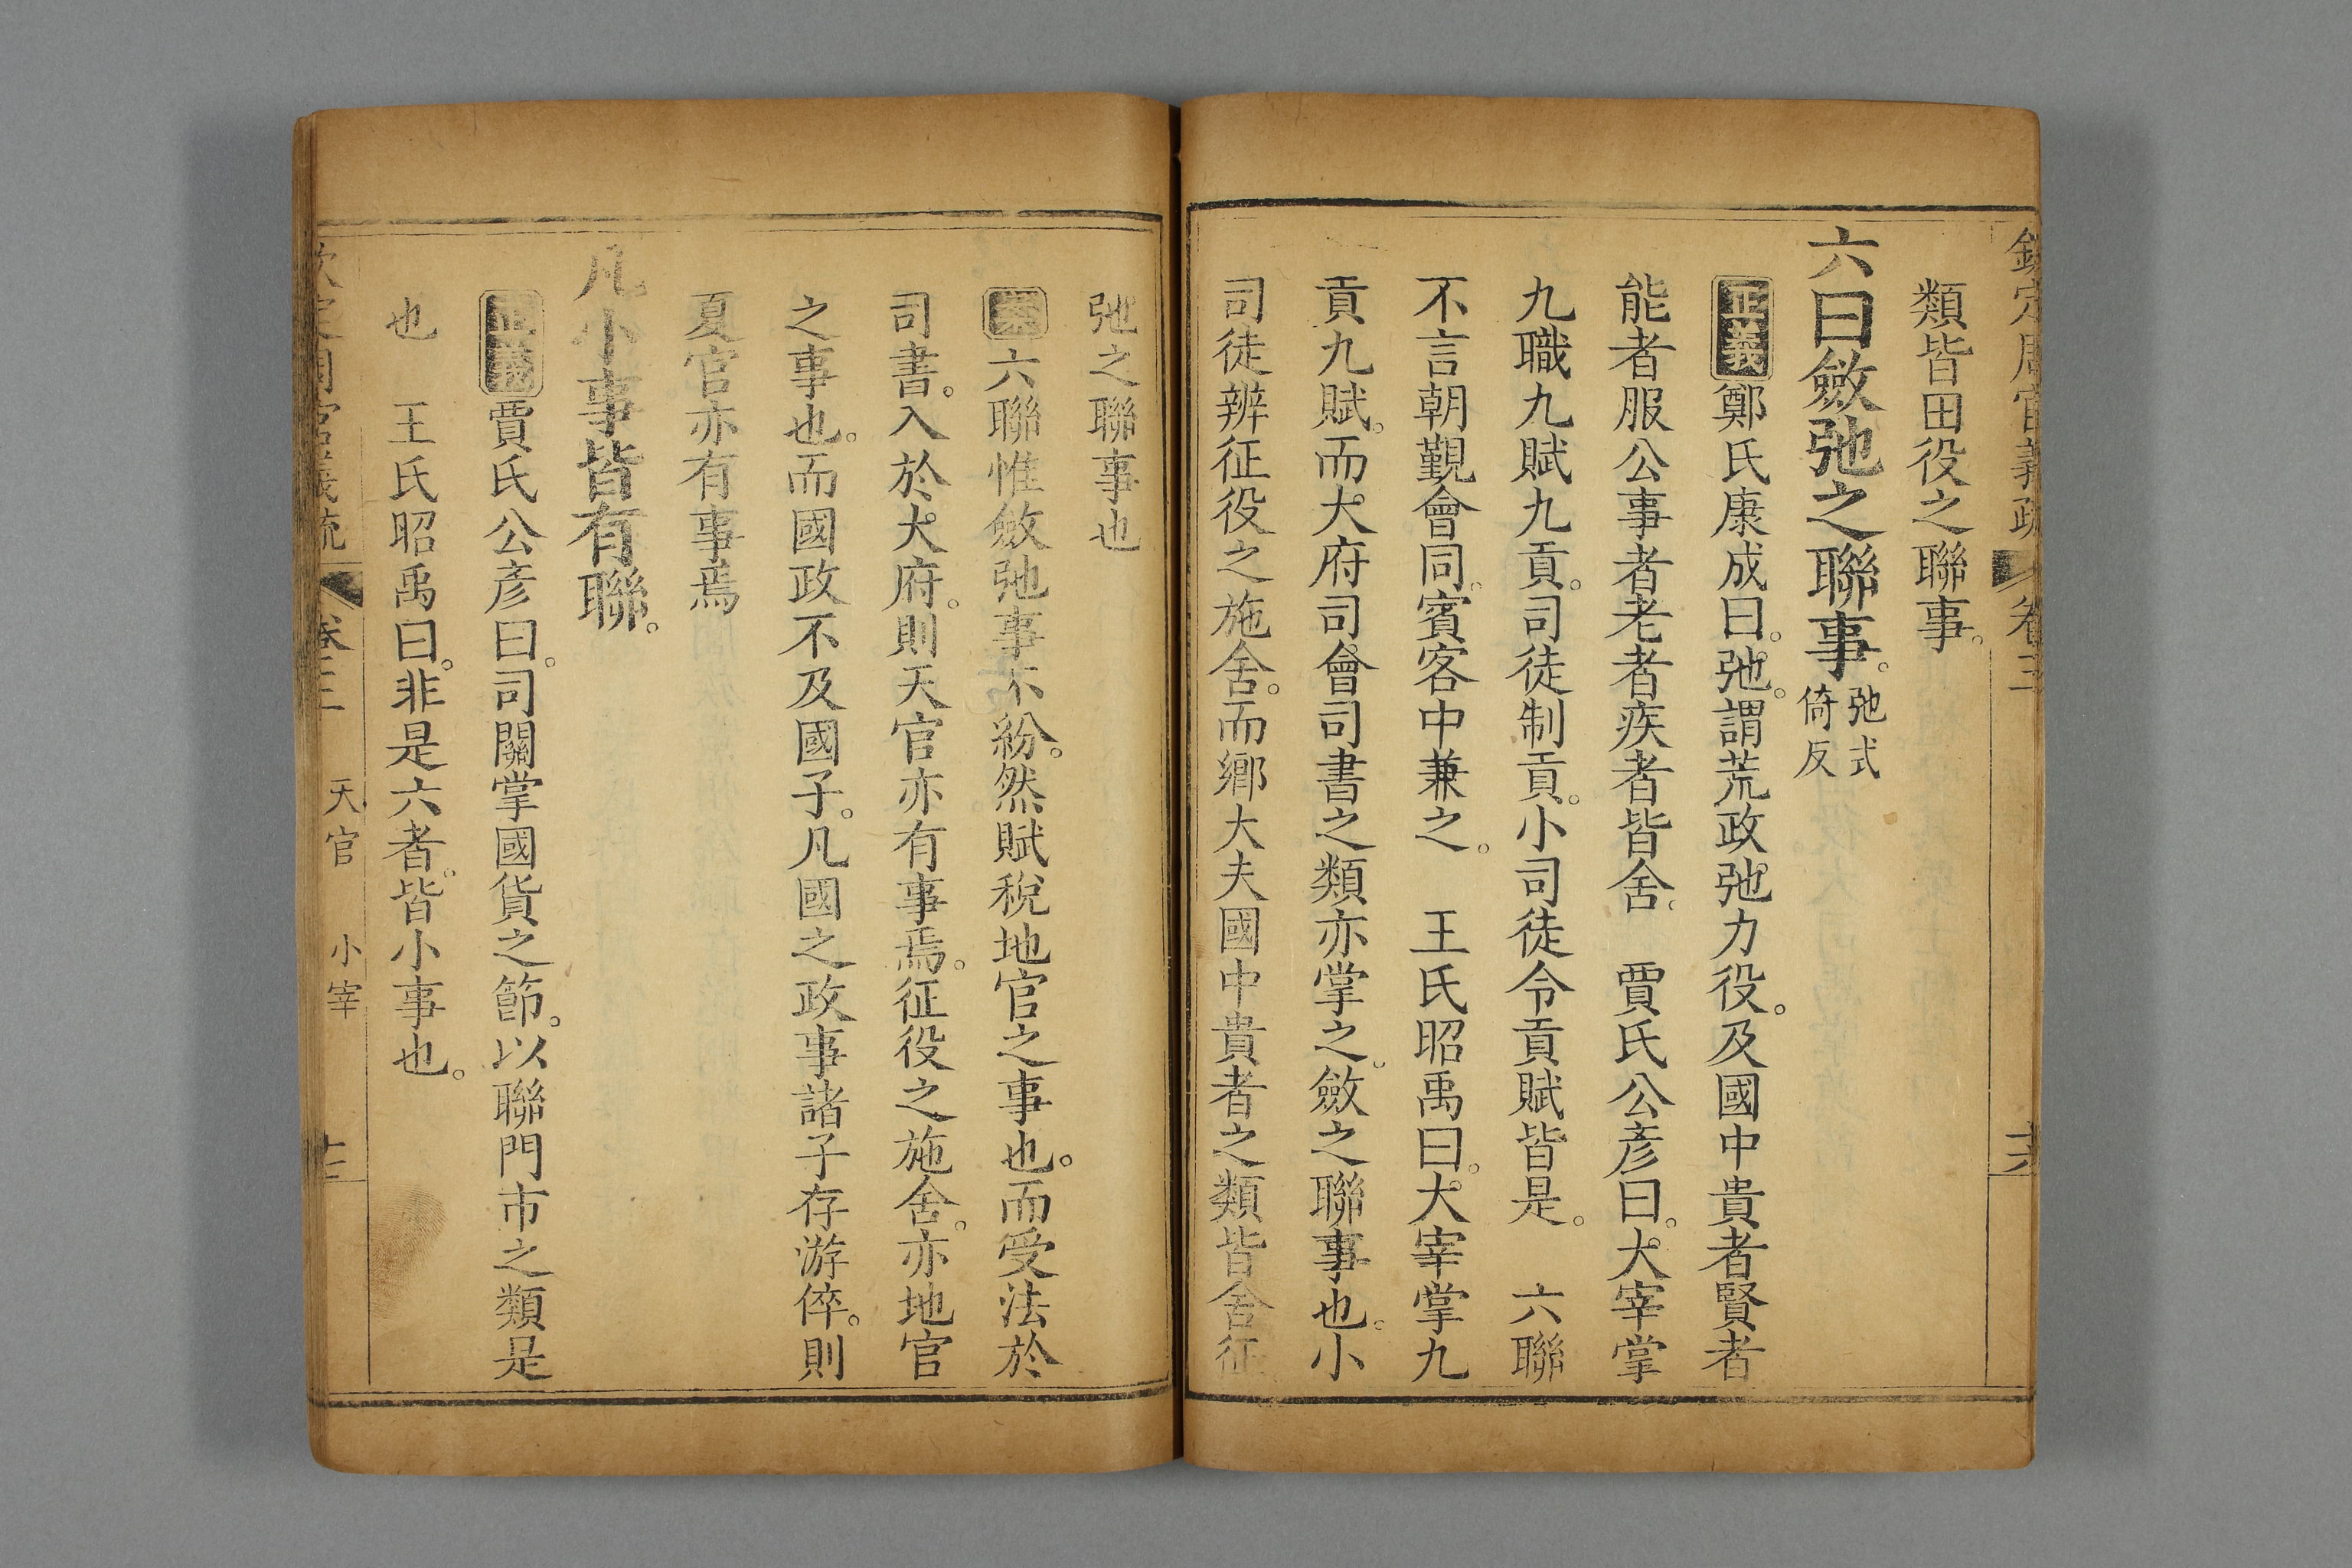 欽定周官義疏 卷三
類皆田役之聯事。
六曰斂弛之聯事。弛式倚反
正義鄭氏康成曰。弛。謂荒政弛力役。及國中貴者賢者
能者服公事者老者疾者皆舍。 賈氏公彥曰。大宰掌
九職九賦九貢。司徒制貢。小司徒令貢賦皆是。 六聯
不言朝覲會同。賓客中兼之。 王氏昭禹曰。大宰掌九
貢九賦。而大府司會司書之類亦掌之。斂之聯事也。小
司徒辨征役之施舍。而鄉大夫國中貴者之類皆舍征
弛之聯事也
案六聯惟斂弛事不紛。然賦稅地官之事也。而受法於
司書。入於大府。則天官亦有事焉。征役之施舍。亦地官
之事也。而國政不及國子。凡國之政事諸子存游倅。則
夏官亦有事焉
凡小事皆有聯。
正義賈氏公彥曰。司關掌國貨之節。以聯門市之類是
也 王氏昭禹曰。非是六者。皆小事也。
欽定周官義疏 卷三 天官 小宰